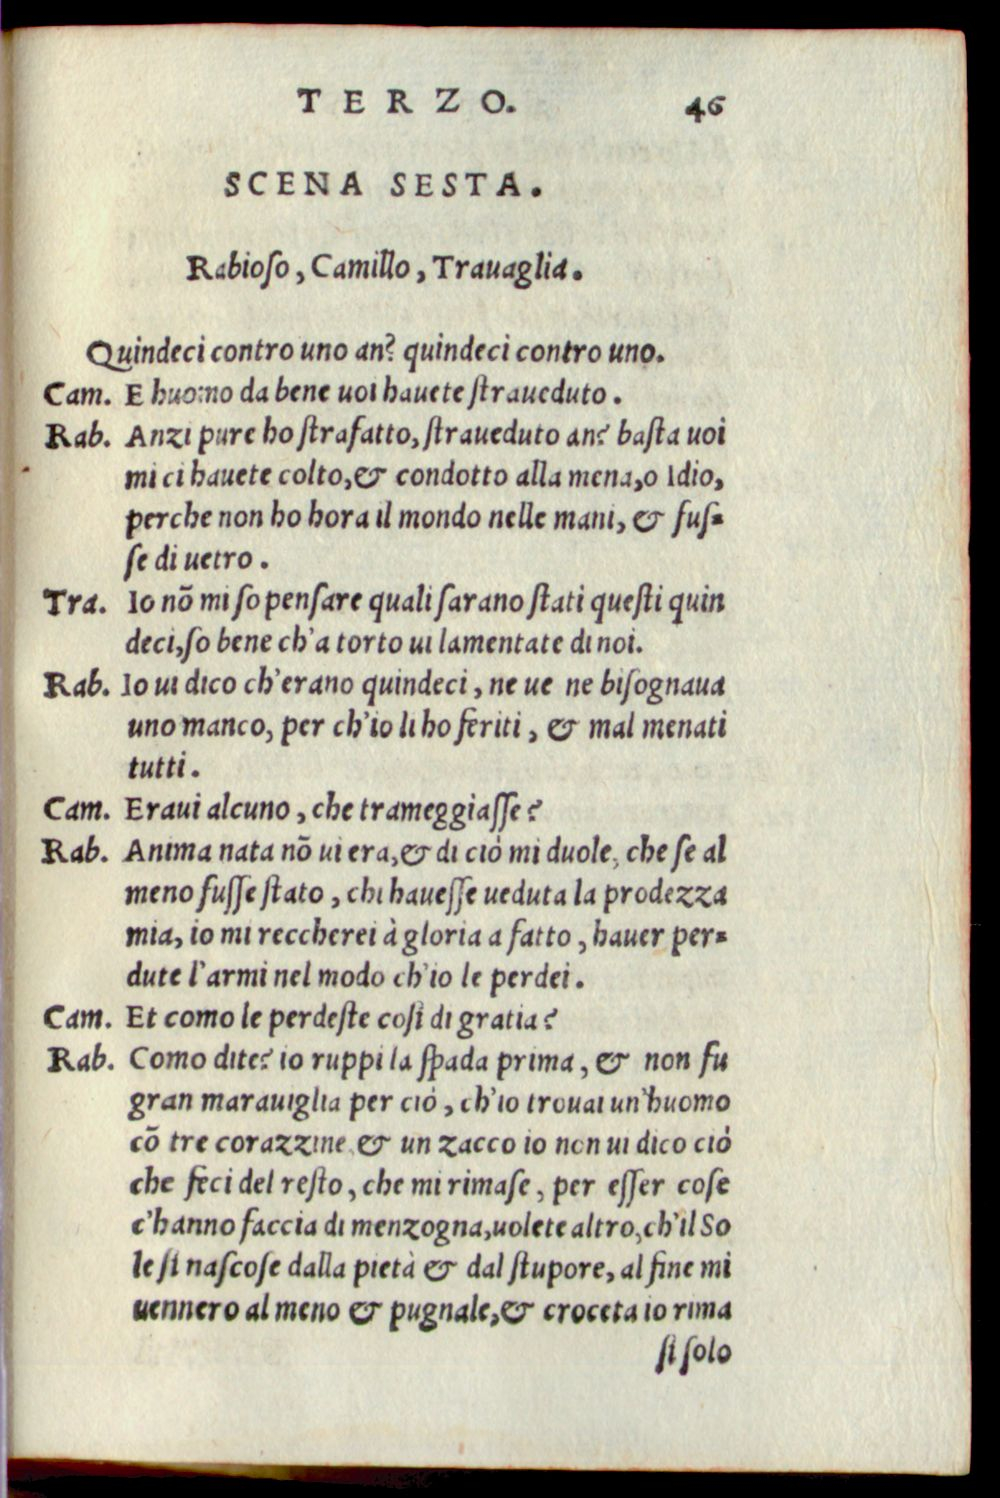 TERZO. 46
SCENA SESTA.
Rabioſo, Camillo, Trauaglia.
Quindeci contro uno an? quindeci contro uno.
Cam. E huomo da bene uoi hauete ſtraueduto.
Rab. Anzi pure ho ſtrafatto, ſtraueduto an? baſta uoi
mi ci hauete colto, & condotto alla mena, o Idio,
perche non ho hora il mondo nelle mani, & fuſ-
ſe di uetro.
Tra. Io nõ mi ſo penſare quali ſarano ſtati queſti quin
deci, ſo bene ch'a torto ui lamentate di noi.
Rab. Io ui dico ch'erano quindeci, ne ue ne biſognaua
uno manco, per ch'io li ho feriti, & mal menati
tutti.
Cam. Eraui alcuno, che trameggiaſſe?
Rab. Anima nata nõ ui era, & di ciò mi duole, che ſe al
meno fuſſe ſtato, chi haueſſe ueduta la prodezza
mia, io mi reccherei à gloria a fatto, hauer per-
dute l'armi nel modo ch'io le perdei.
Cam. Et como le perdeſte coſi di gratia?
Rab. Como dite? io ruppi la ſpada prima, & non fu
gran marauiglia per ciò, ch'io trouai un'huomo
cõ tre corazzine & un zacco io non ui dico ciò
che feci del reſto, che mi rimaſe, per eſſer coſe
c'hanno faccia di menzogna, uolete altro, ch'il So
le ſi naſcoſe dalla pietà & dal ſtupore, al fine mi
uennero al meno & pugnale, & croceta io rima
ſi ſolo